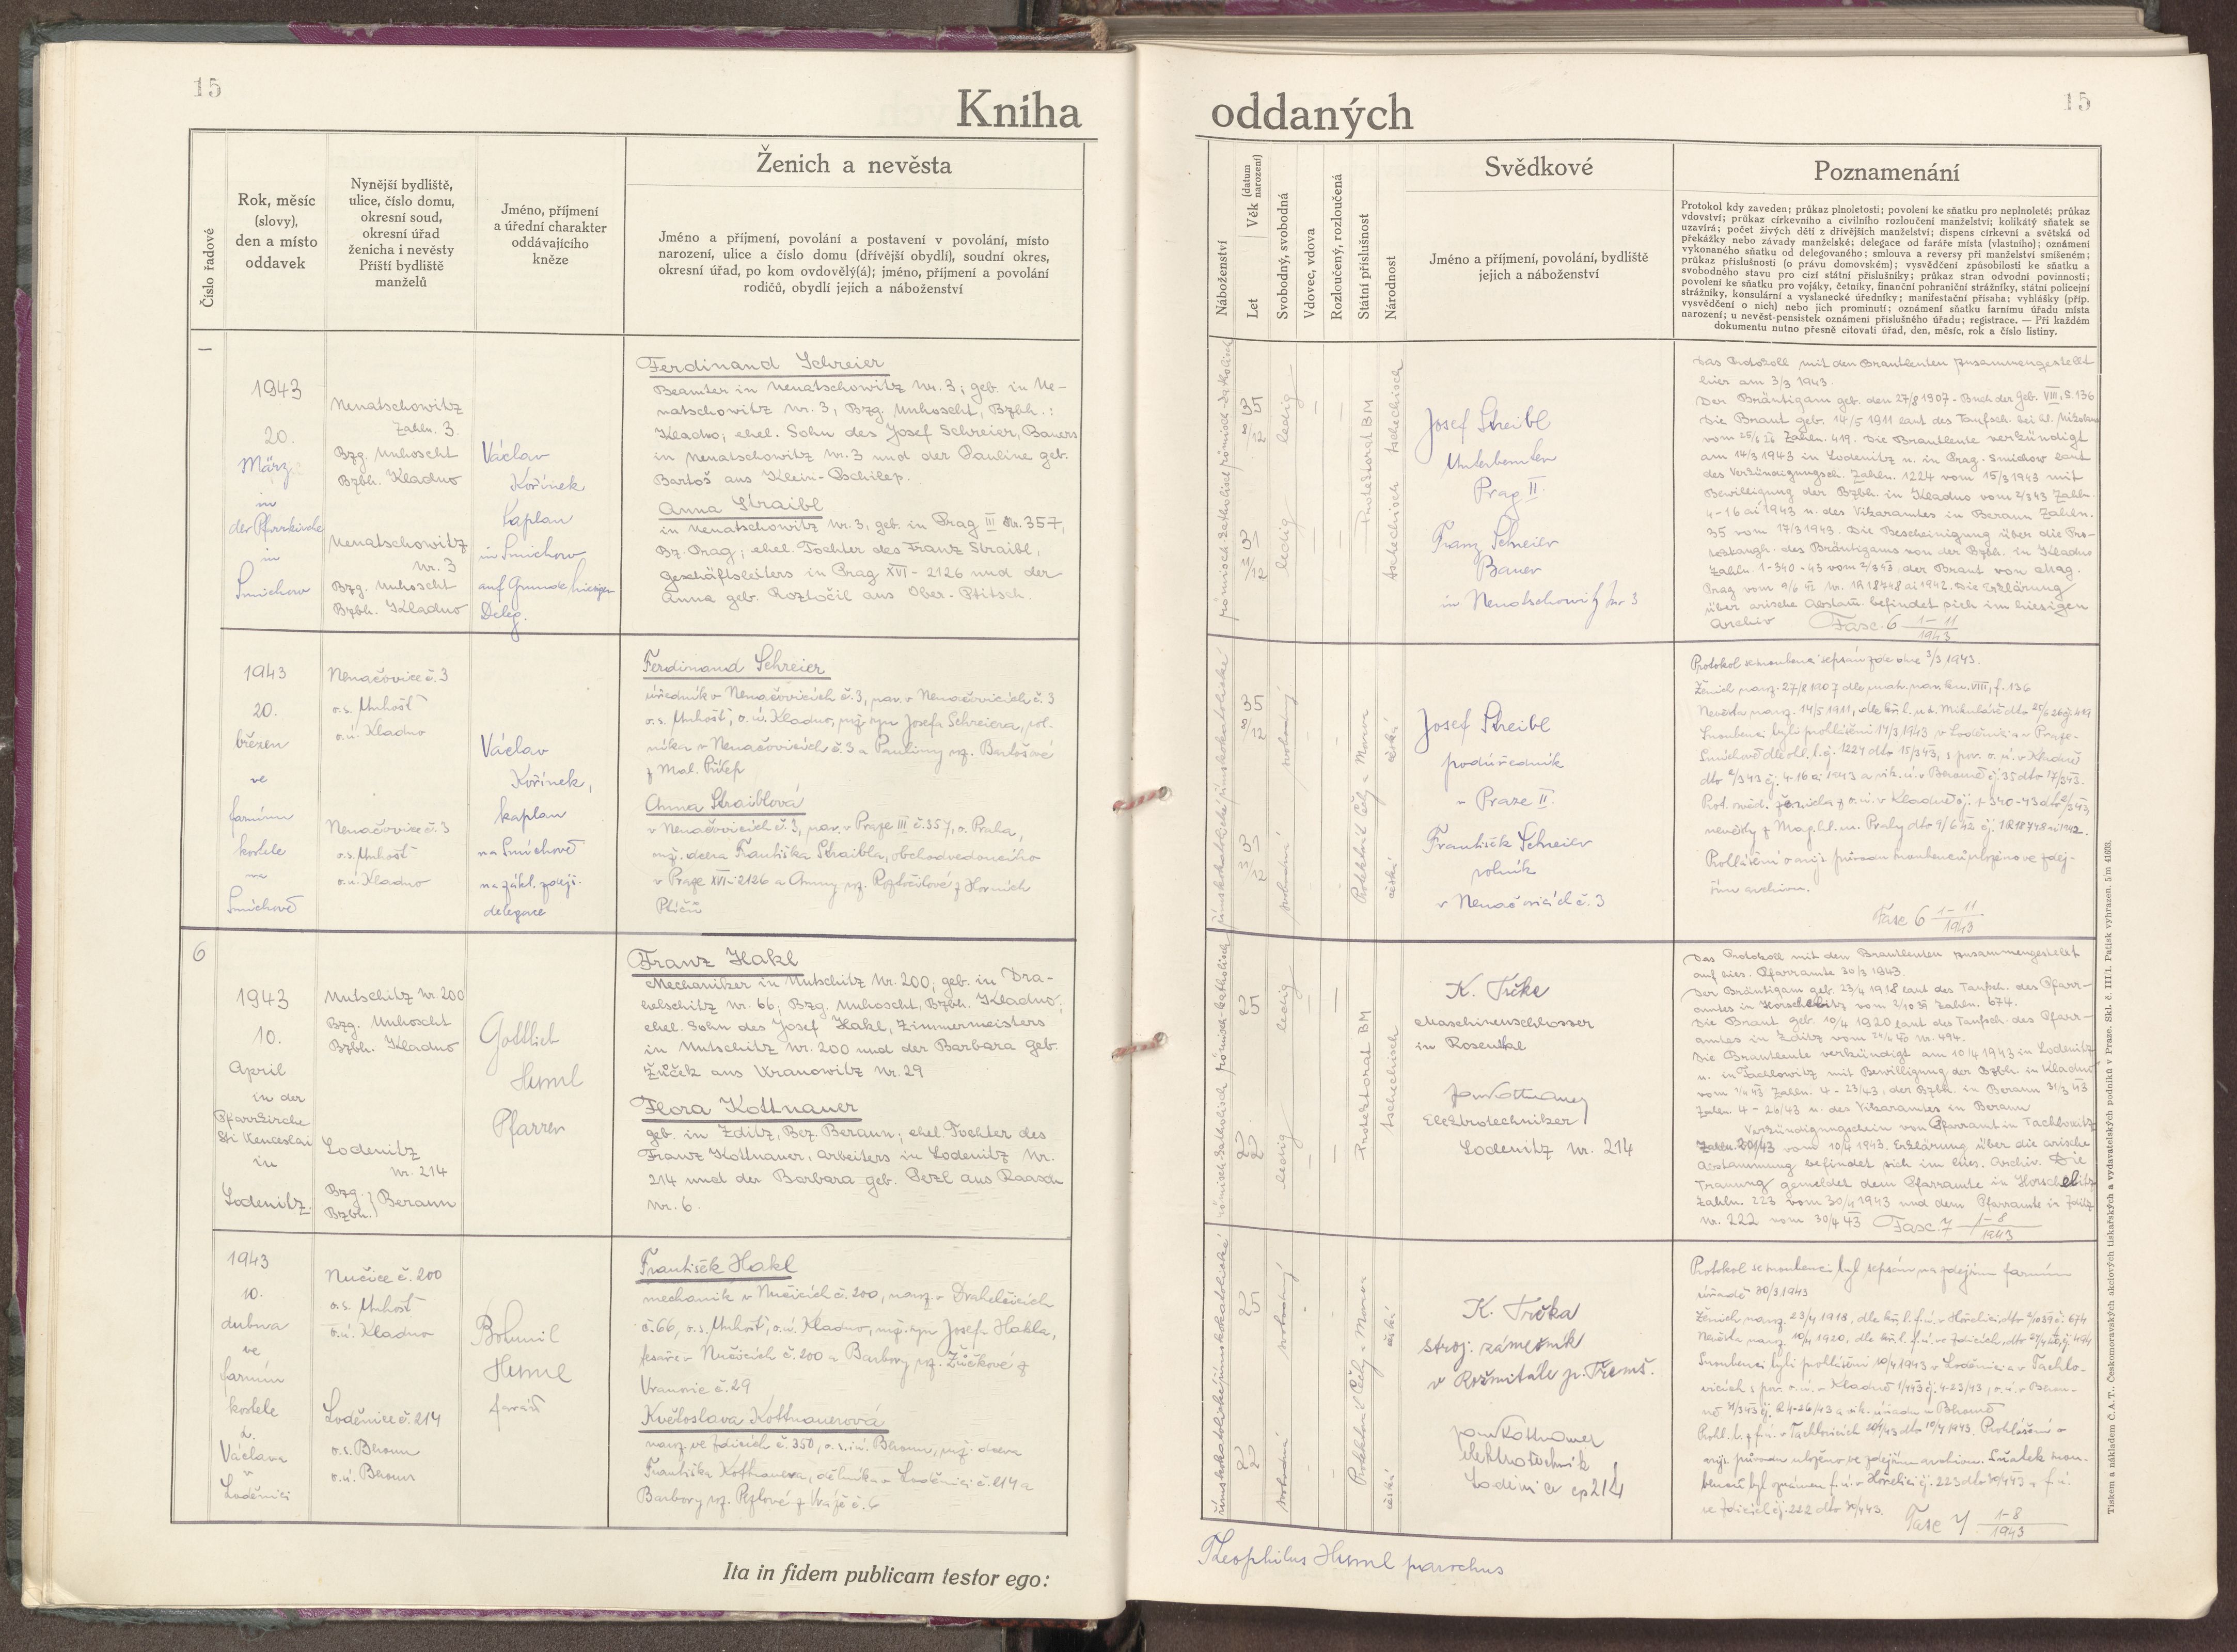 15
Kniha
Číslo řadové
Rok, měsíc
(slovy),
den a místo
oddavek
Nynější bydliště,
ulice, číslo domu,
okresní soud,
okresní úřad
ženicha i nevěsty
Příští bydliště
manželů
Jméno, příjmení
a úřední charakter
oddávajícího
kněze
Ženich a nevěsta
Jméno a příjmení, povolání a postavení v povolání, místo
narození, ulice a číslo domu (dřívější obydlí), soudní okres,
okresní úřad, po kom ovdovělý(á); jméno, příjmení a povolání
rodičů, obydlí jejich a náboženství
1943
20.
März
in
der Pfarrkirche
in
Smichow
Nenatschowitz
Zahln. 3.
Bzg. Unhoscht
Bzbh. Kladno
Nenatschowitz
Nr. 3
Bzg. Unhoscht
Bzbh. Kladno
Václav
Kořínek
Kaplan
in Smichow
auf Grunde hiesigen
Deleg.
Ferdinand Schreier
Beamter in Nenatschowitz Nr. 3; geb. in Ne-
natschowitz Nr. 3, Bzg. Unhoscht, Bzbh.:
Kladno; ehel. Sohn des Josef Schreier, Bauers
in Nenatschowitz Nr. 3 und der Pauline geb.
Bartoš aus Klein-Pschilep.
Anna Straibl
in Nenatschowitz Nr. 3, geb. in Prag III Nr. 357,
Bz. Prag; ehel. Tochter des Franz Straibl,
Geschäftsleiters in Prag XVI - 2126 und der
Anna geb. Roztočil aus Ober-Ptitsch.
1943
20.
březen
ve
farním
kostele
na
Smíchově
Nenačovice č. 3
o.s. Unhošť
o.ú. Kladno
Nenačovice č. 3
o.s. Unhošť
o.ú. Kladno
Václav
Kořínek,
kaplan
na Smíchově
na zákl. zdejš.
delegace
Ferdinand Schreier
úředník v Nenačovicích č. 3, nar. v Nenačovicích č. 3
o.s. Unhošť, o.ú. Kladno, mž. syn Josefa Schreiera, rol-
níka v Nenačovicích č. 3 a Pauliny roz. Bartošové
z Mal. Přílep
Anna Straiblová
v Nenačovicích č. 3, nar. v Praze III č. 357, o. Praha,
mž. dcera Františka Straibla, obchodvedoucího
v Praze XVI-2126 a Anny roz. Roztočilové z Horních
Ptičic
6
1943
10.
April
in der
Pfarrkirche
Sti Wenceslai
in
Lodenitz.
Nutschitz Nr. 200
Bzg. Unhoscht
Bzbh. Kladno
Lodenitz
Nr. 214
Bzg. } Beraun
Bzbh.
Gottlieb
Huml
Pfarrer
Franz Hakl
Mechaniker in Nutschitz Nr. 200; geb. in Dra-
helschitz Nr. 66; Bzg. Unhoscht, Bzbh. Kladno;
ehel. Sohn des Josef Hakl, Zimmermeisters
in Nutschitz Nr. 200 und der Barbara geb.
Žůček aus Wranowitz Nr. 29
Flora Kottnauer
geb. in Zditz, Bez. Beraun; ehel. Tochter des
Franz Kottnauer, Arbeiters in Lodenitz Nr.
214 und der Barbara geb. Pezl aus
Nr. 6.
1943
10.
dubna
ve
farním
kostele
sv.
Václava
v
Loděnici
Nučice č. 200
o.s. Unhošť
o.ú. Kladno
Loděnice č. 214
o.s. Beroun
o.ú. Beroun
Bohumil
Huml
farář
František Hakl
mechanik v Nučicích č. 200, naroz. v Drahelčicích
č. 66, o.s. Unhošť, o.ú. Kladno, mž. syn Josefa Hakla,
tesaře v Nučicích č. 200 a Barbory roz. Žůčkové z
Vranovic č. 29
Květoslava Kottnauerová
naroz. ve Zdicích č. 350, o.s. i ú. Beroun, mž. dcera
Františka Kottnauera, dělníka v Loděnici č. 214 a
Barbory roz. Pezlové z Vráže č. 6
Ita in fidem publicam testor ego:
oddaných
15
Náboženství
Let
Věk (datum narození)
Svobodný, svobodná
Vdovec, vdova
Rozloučený, rozloučená
Státní příslušnost
Národnost
Svědkové
Jméno a příjmení, povolání, bydliště
jejich a náboženství
Poznamenání
Protokol kdy zaveden; průkaz plnoletosti; povolení ke sňatku pro neplnoleté; průkaz
vdovství; průkaz církevního a civilního rozloučení manželství; kolikátý sňatek se
uzavírá; počet živých dětí z dřívějších manželství; dispens církevní a světská od
překážky nebo závady manželské; delegace od faráře místa (vlastního); oznámení
vykonaného sňatku od delegovaného; smlouva a reversy při manželství smíšeném;
průkaz příslušnosti (o právu domovském); vysvědčení způsobilosti ke sňatku a
svobodného stavu pro cizí státní příslušníky; průkaz stran odvodní povinnosti;
povolení ke sňatku pro vojáky, četníky, finanční pohraniční strážníky, státní policejní
strážníky, konsulární a vyslanecké úředníky; manifestační přísaha; vyhlášky (příp.
vysvědčení o nich) nebo jich prominutí; oznámení sňatku farnímu úřadu místa
narození; u nevěst-pensistek oznámení příslušného úřadu; registrace. — Při každém
dokumentu nutno přesně citovati úřad, den, měsíc, rok a číslo listiny.
römisch-katholisch römisch-katholisch
ledig
ledig
Protektorat BM
tschechisch tschechisch
Josef Streibl
Unterbeamter
Prag II.
Franz Schreier
Bauer
in Nenatschowitz Nr 3
Das Protokoll mit den Brautleuten zusammengestellt
hier am 3/3 1943.
Der Bräutigam geb. den 27/8 1907 - Buch der Geb. VIII, S. 136
Die Braut geb. 14/5 1911 laut des Taufsch. bei hl. Nikolaus
vom 25/6 Zahln. 419. Die Brautleute verkündigt
am 14/3 1943 in Lodenitz u. in Prag-Smichow laut
des Verkündigungsch. Zahln. 1224 vom 15/3 1943 mit
Bewilligung der Bzbh. in Kladno vom 2/3 43 Zahln.
4-16 ai 1943 u. des Vikaramtes in Beraun Zahln.
35 vom 17/3 1943. Die Bescheinigung über die Pro-
des Bräutigams von der Bzbh. in Kladno
Zahln. 1-340-43 vom 2/3 43, der Braut von Mag.
Prag vom 9/6 42 Nr. 1R 18748 ai 1942. Die Erklärung
über arische Abstam. befindet sich im hiesigen
Archiv Fasc. 6 1-11/1943
římskokatolické římskokatolické
35
svobodný
svobodná
Protektorát Čechy a Morava
česká
česká
Josef Streibl
podúředník
v Praze II.
František Schreier
rolník
v Nenačovicích č. 3
Protokol se snoubenci sepsán zde dne 3/3 1943.
Ženich naroz. 27/8 1907 dle mat. nar. kn. VIII, f. 136
Nevěsta naroz. 14/5 1911, dle kř. l. u sv. Mikuláše dto 25/6 26 čj. 419
Snoubenci byli prohlášeni 14/3 1943 v Loděnici a v Praze-
Smíchově dle ohl. l. čj. 1224 dto 15/3 43, s pov. o.ú. v Kladně
dto 2/3 43 čj. 4-16 ai 1943 a vik. ú. v Berouně čj. 35 dto 17/3 43.
Prot. svěd. ženicha z o.ú. v Kladně čj. 1-340-43 dto 2/3 43,
nevěsty z Mag. hl. m. Prahy dto 9/6 42 čj. 1R 18748 ai 1942.
Prohlášení o arijs. původu snoubenců uloženo ve zdej-
ším archivu.
Fasc 6 1-11/1943
römisch-katholisch römisch-katholisch
25
22
ledig
ledig
Protektorat BM
tschechisch
K. Trčka
Maschinenschlosser
in Rosenthal
Jan Kottnauer
Elektrotechniker
Lodenitz Nr. 214
Das Protokoll mit den Brautleuten zusammengestellt
auf hies. Pfarramte 30/3 1943.
Der Bräutigam geb. 23/4 1918 laut des Taufsch. des Pfarr-
amtes in Horschelitz vom 2/10 39 Zahln. 674.
Die Braut geb. 10/4 1920 laut des Taufsch. des Pfarr-
amtes in Zditz vom 24/6 40 Nr. 494.
Die Brautleute verkündigt am 10/4 1943 in Lodenitz
u. in Tachlowitz mit Bewilligung der Bzbh. in Kladno
vom 1/4 43 Zahln. 4-23/43, der Bzbh. in Beraun 31/3 43
Zahln. 4-26/43 u. des Vikaramtes in Beraun
Verkündigungschein von Pfarramt in Tachlowitz
Zahln. 201/43 vom 10/4 1943. Erklärung über die arische
Abstammung befindet sich im hies. Archiv. Die
Trauung gemeldet dem Pfarramte in Horschelitz
Zahln. 223 vom 30/4 1943 und dem Pfarramte in Zditz
Nr. 222 vom 30/4 43 Fasc. 7 1-8/1943
římskokatolické římskokatolické
25
22
svobodný
svobodná
Protektorát Čechy a Morava
česká
česká
K. Trčka
stroj. zámečník
v Rožmitále p. Třemš.
Jan Kottnauer
elektrotechnik
Lodenice čp 214
Protokol se snoubenci byl sepsán na zdejším farním
úřadě 30/3 1943
Ženich naroz. 23/4 1918, dle kř. l. f.ú. v Hořelici dto 2/10 39 č. 674
Nevěsta naroz. 10/4 1920, dle kř. l. f.ú. ve Zdicích dto 24/6 40 čj. 494
Snoubenci byli prohlášeni 10/4 1943 v Loděnici a v Tachlo-
vicích s pov. o.ú. v Kladně 1/4 43 čj. 4-23/43, o.ú. v Berou-
ně 31/3 43 čj. 4-26/43 a vik. úřadu v Berouně
Prohl. l. z f.ú. v Tachlovicích 201/43 dto 10/4 1943. Prohlášení o
arijs. původu uloženo ve zdejším archivu. Sňatek snou-
benců byl oznámen f.ú. v Hořelici čj. 223 dto 30/4 43 a f.ú.
ve Zdicích čj. 222 dto 30/4 43.
Fasc 7 1-8/1943
Theophilus Huml parochus
Tiskem a nákladem Č.A.T., Českomoravských akciových tiskařských a vydavatelských podniků v Praze. Skl. č. III/1. Patisk vyhrazen. 5m 41603.